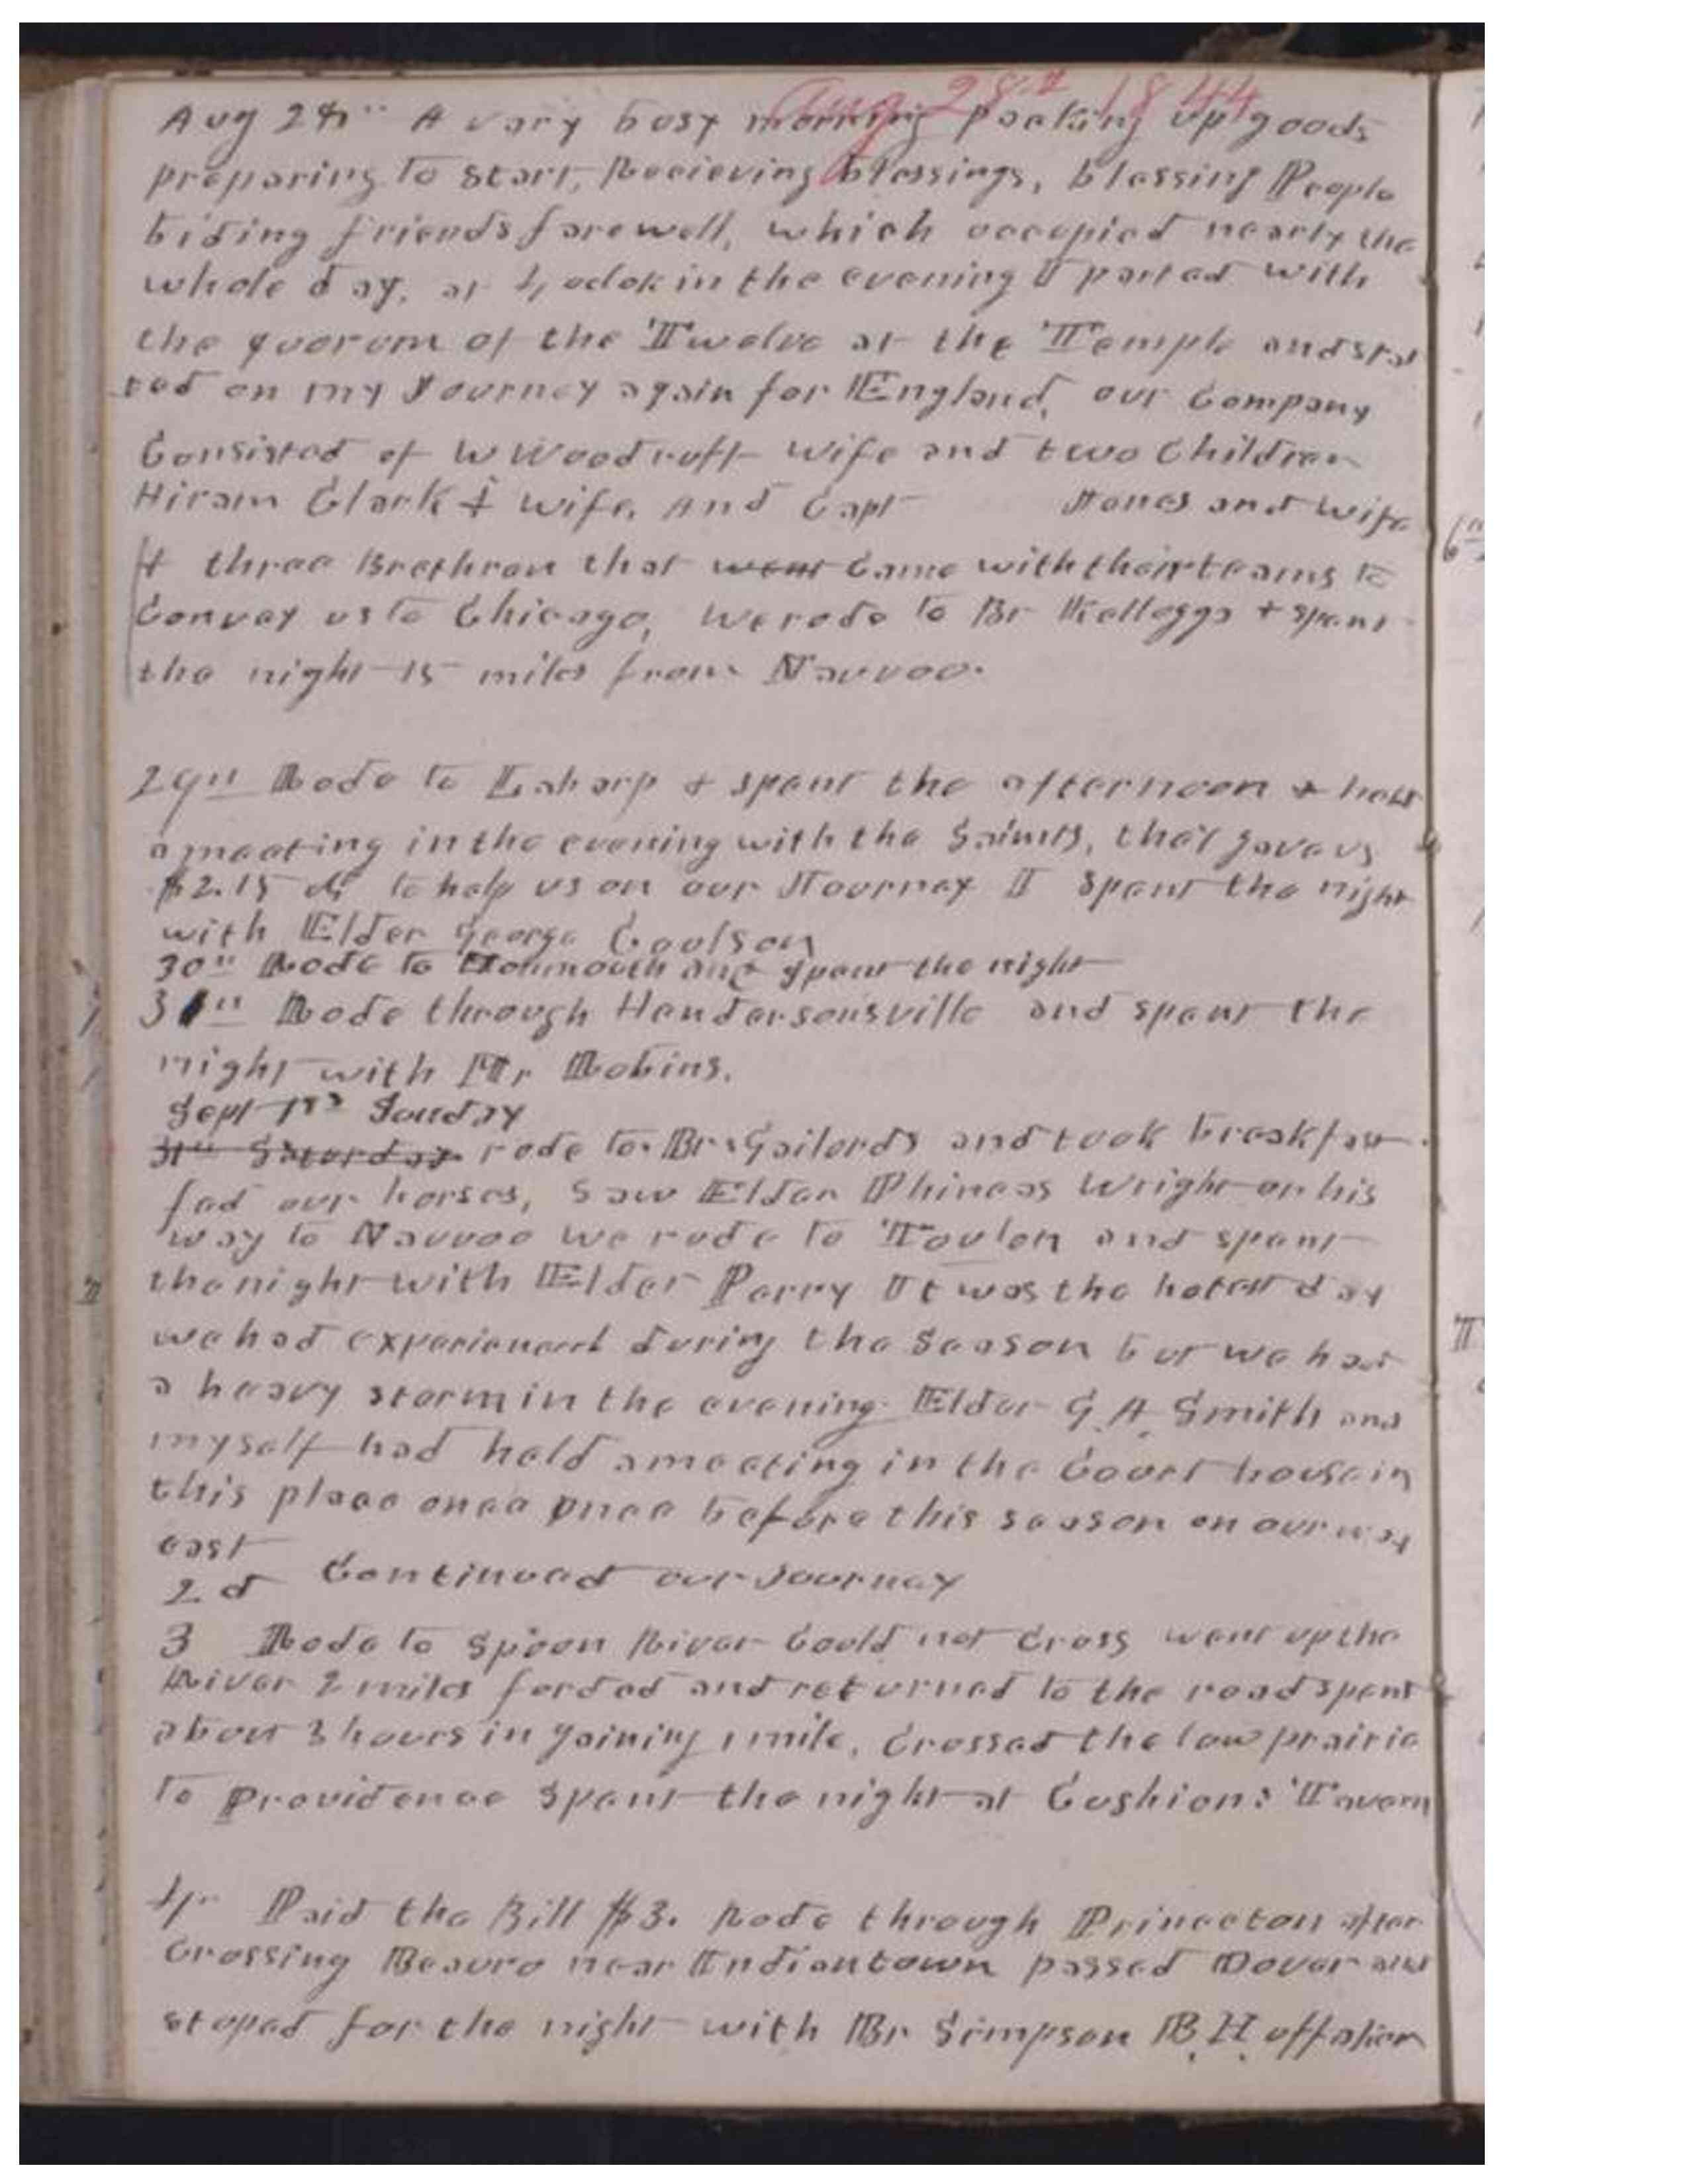 Aug 28th 1844
Aug 28th A very busy morning packing up goods
preparing to start, Recieving blessings, blessing People
biding friends farewell, which occupied nearly the
whole day, at 4 oclok in the evening I parted with
the quorum of the Twelve at the Temple and star
ted on my Journey again for England, our Company
Consisted of W Woodruff wife and two Children
Hiram Clark & wife, And Capt Jones and wife
& three Brethren that went Came with their teams to
Convey us to Chicago, we rode to Br Kelloggs + spent
the night 15 miles from Nauvoo.
29th Rode to Laharp + spent the afternoon + held
a meeting in the evening with the Saints, they gave us
$2.15 cts to help us on our Journey I Spent the night
with Elder George Coulson
30th Rode to Monmouth and spent the night
31th Rode through Hendersonsville and spent the
night with Mr Robins.
Sept 1st Sunday
31th Saturday rode to Br Gailords and took breakfast
fed our horses, saw Elder Phineas Wright on his
way to Nauvoo we rode to Toulon and spent
the night with Elder Perry It was the hotest day
we had experienced during the Season but we had
a heavy storm in the evening Elder G. A. Smith and
myself had held a meeting in the Court house in
this place once once before this season on our way
east
2d Continued our Journey
3 Rode to Spoon River Could not Cross went up the
River 2 miles forded and returned to the road spent
about 3 hours in gaining 1 mile, Crossed the low prairie
to Providence Spent the night at Cushion's Tavern
4th Paid the Bill $3. Rode through Princeton after
Crossing Beauro near Indiantown passed Dover and
stoped for the night with Br Simpson B. H. after